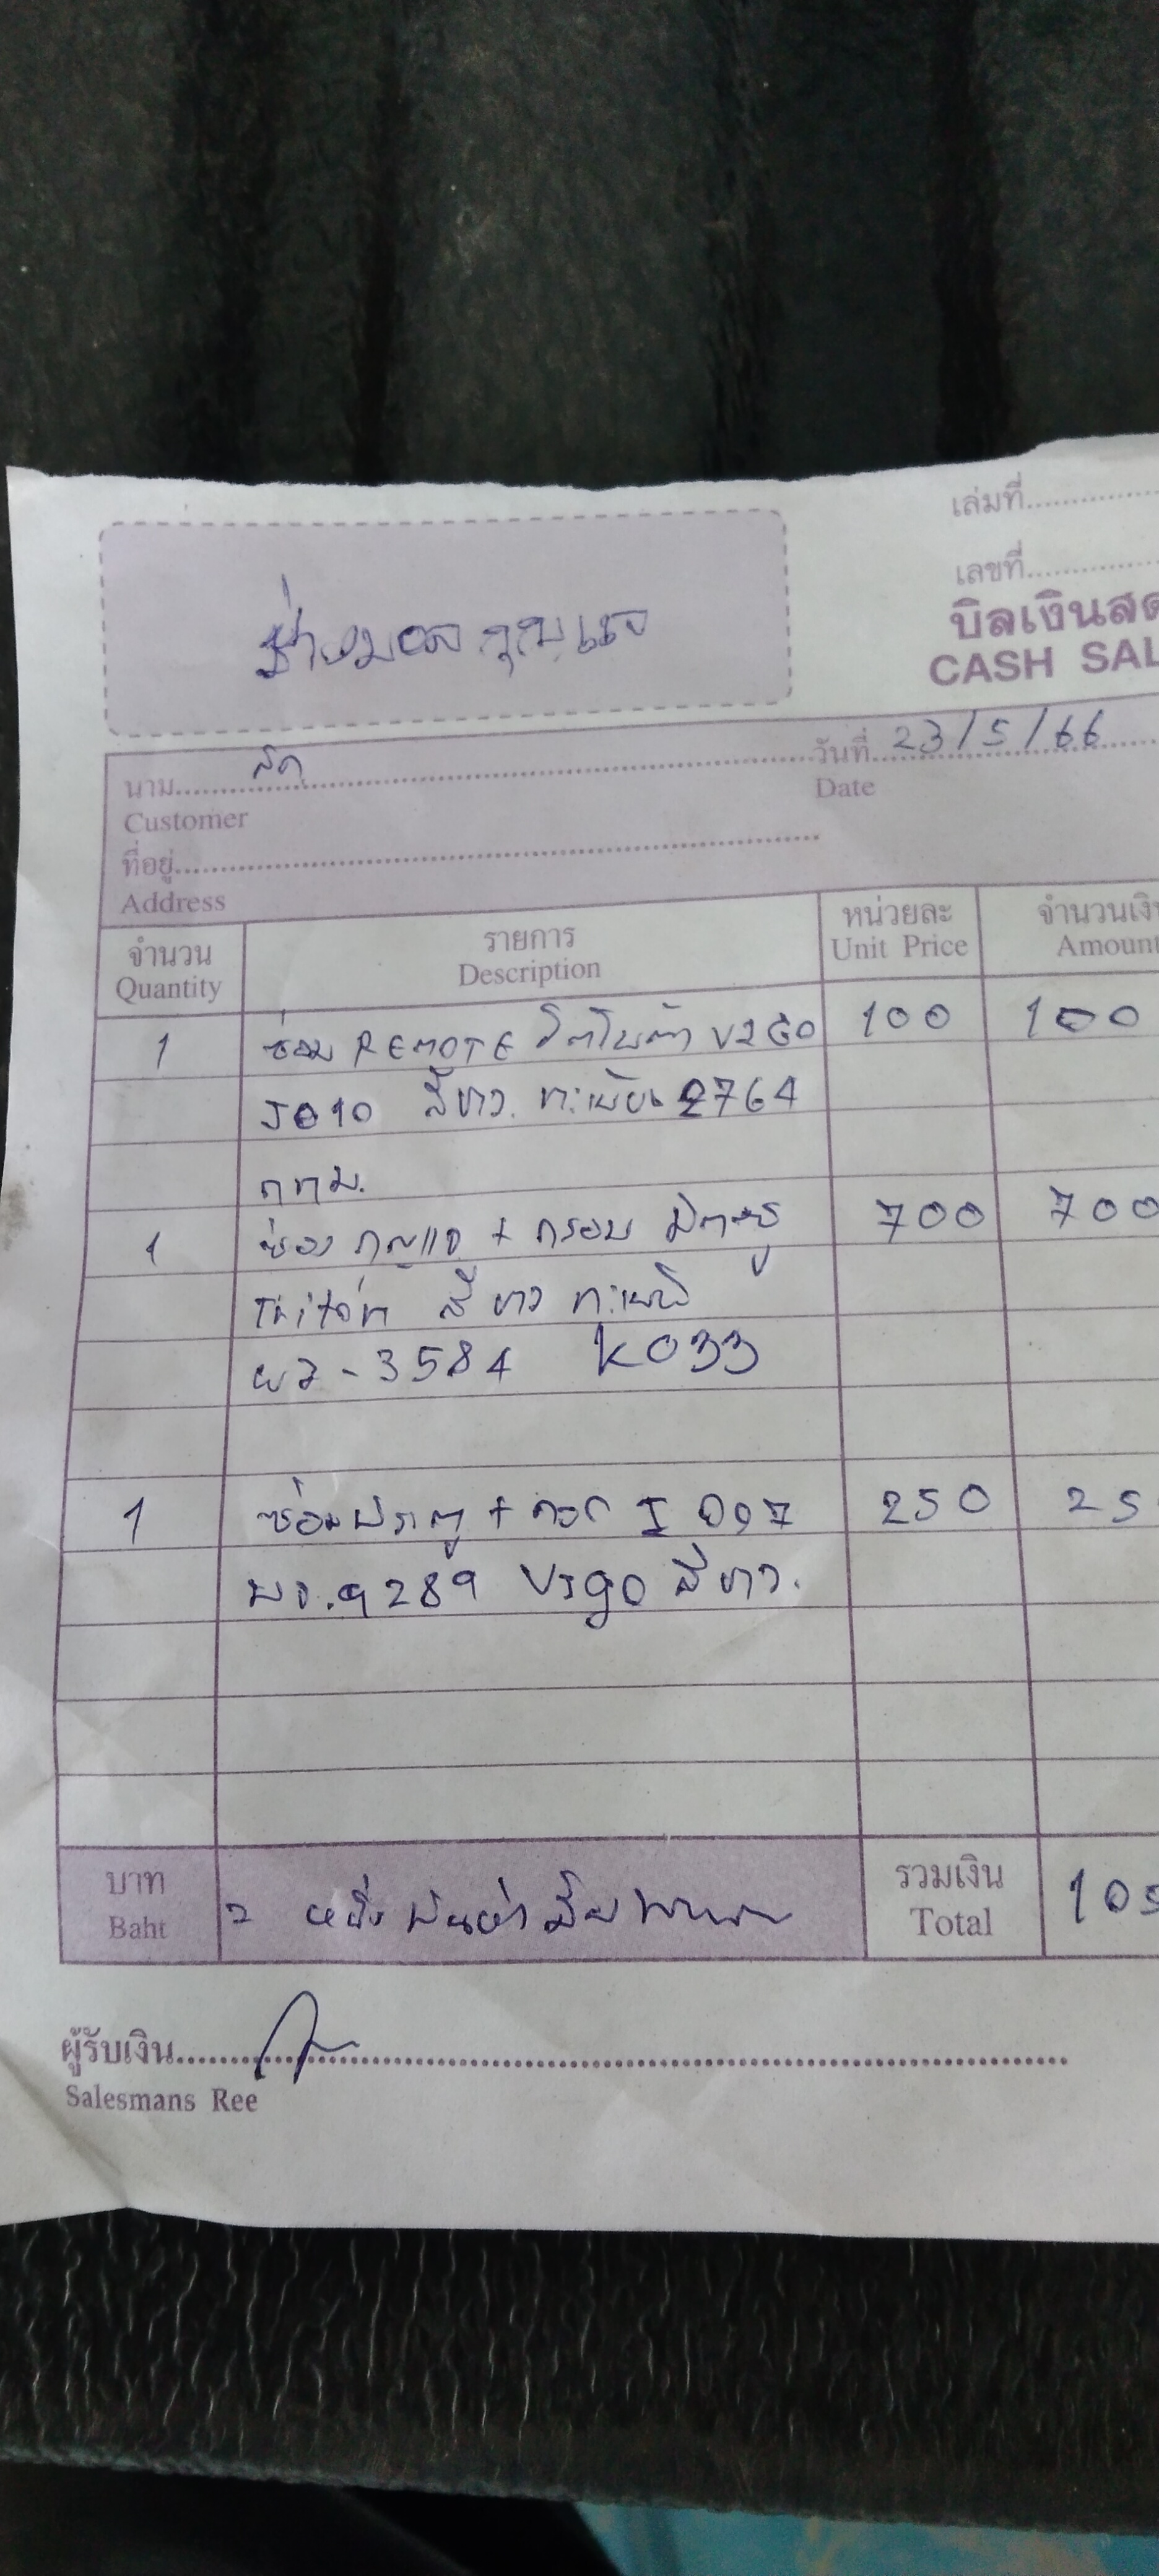 เล่มที่
เลขที่
บิลเงินสด
CASH SAL
ช่างมอส กุญแจ
นาม สด วันที่ 23/5/66
Customer Date
ที่อยู่
Address
จำนวน รายการ หน่วยละ จำนวนเงิ
Quantity Description Unit Price Amount
1 ซ่อม REMOTE โตโยต้า V2GO 100 100
J010 สีขาว. ทะเบียน 2764
กทม.
1 กุญแจ + กรอบ มิตซู 700 700
Triton สีขาว ทะเบียน
3584 K033
1 ซ่อมประตู + I 097 250 25
9289 VIgo สีขาว.
บาท = หนึ่งพันห้าสิบบาท รวมเงิน 105
Baht Total
ผู้รับเงิน
Salesmans Ree